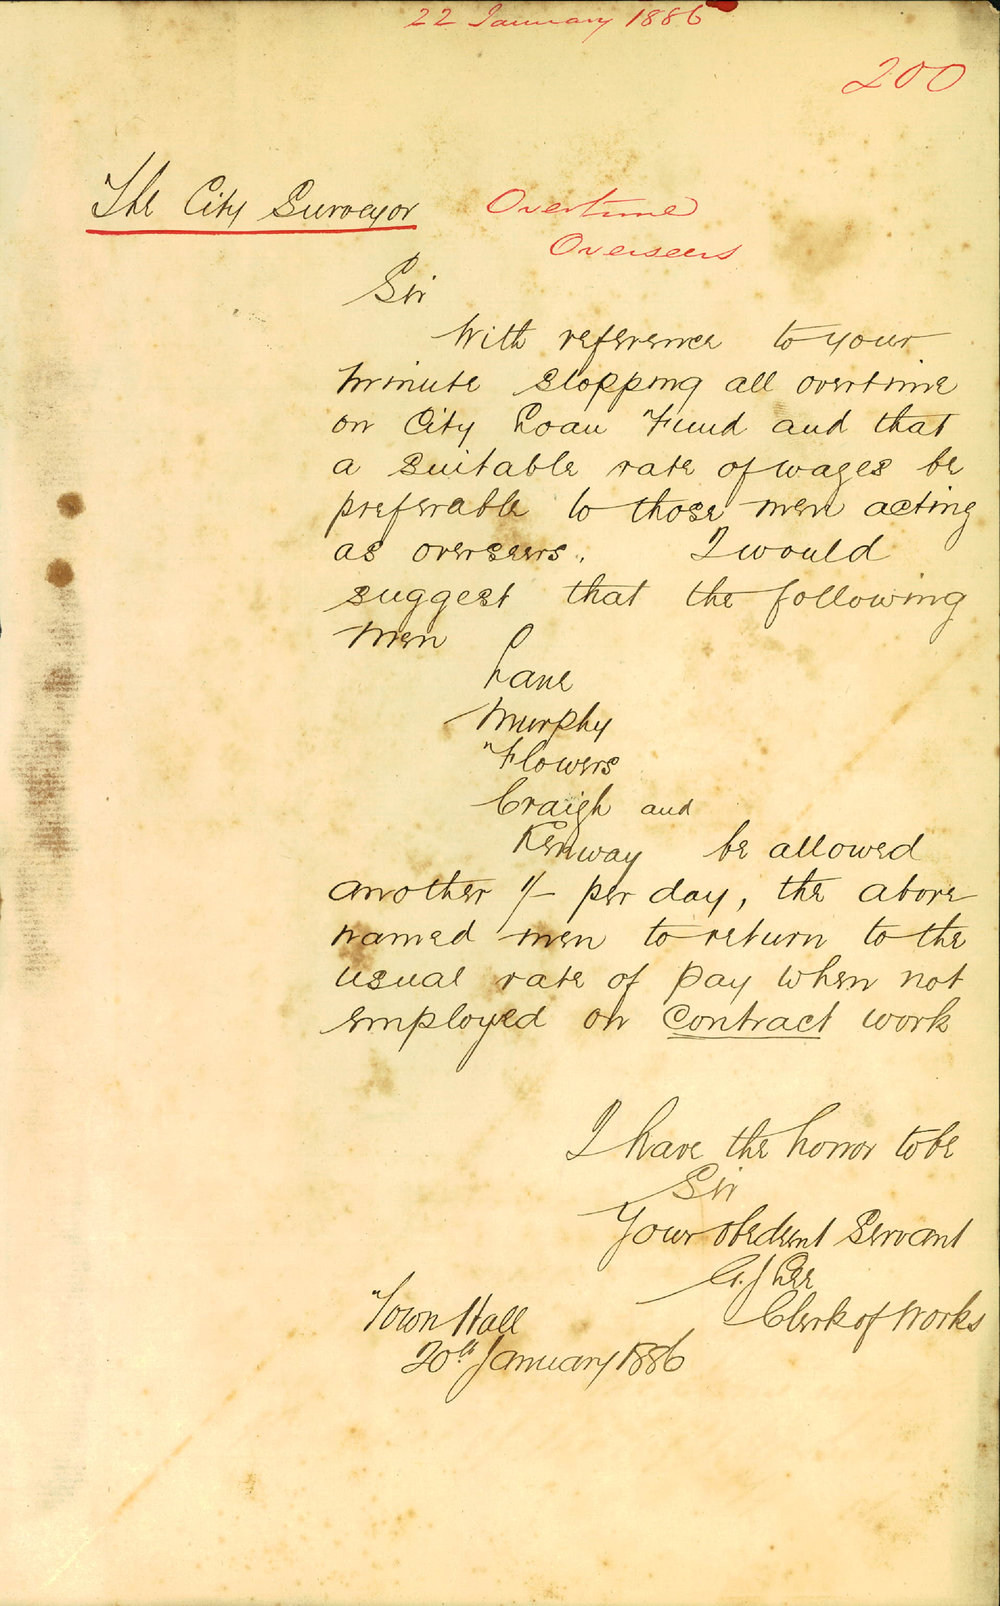 22 January 1886
200
The City Surveyor
Overtime
Overseers
Sir
With reference to your
minute stopping all overtime
on City Loan Fund and that
a suitable rate of wages be
preferable to those men acting
as overseers. I would
suggest that the following
men
Lane
Murphy
Flowers
Craigh and
Kenway be allowed
another 1/- per day, the above
named men to return to the
usual rate of pay when not
employed on contract work
I have the honor to be
Sir
Your obedient Servant
G. J Lee
Clerk of Works
Town Hall
20th January 1886